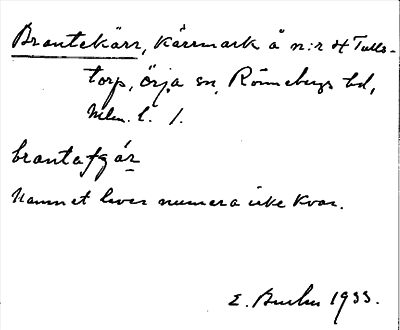 Brantekärr, kärrmark å n:r 4 Tulls-
torp, Örja sn, Rönnebergs hd,
Mlm. l. 1.
brantafgár
Namnet lever numera icke kvar.
E. 1933.